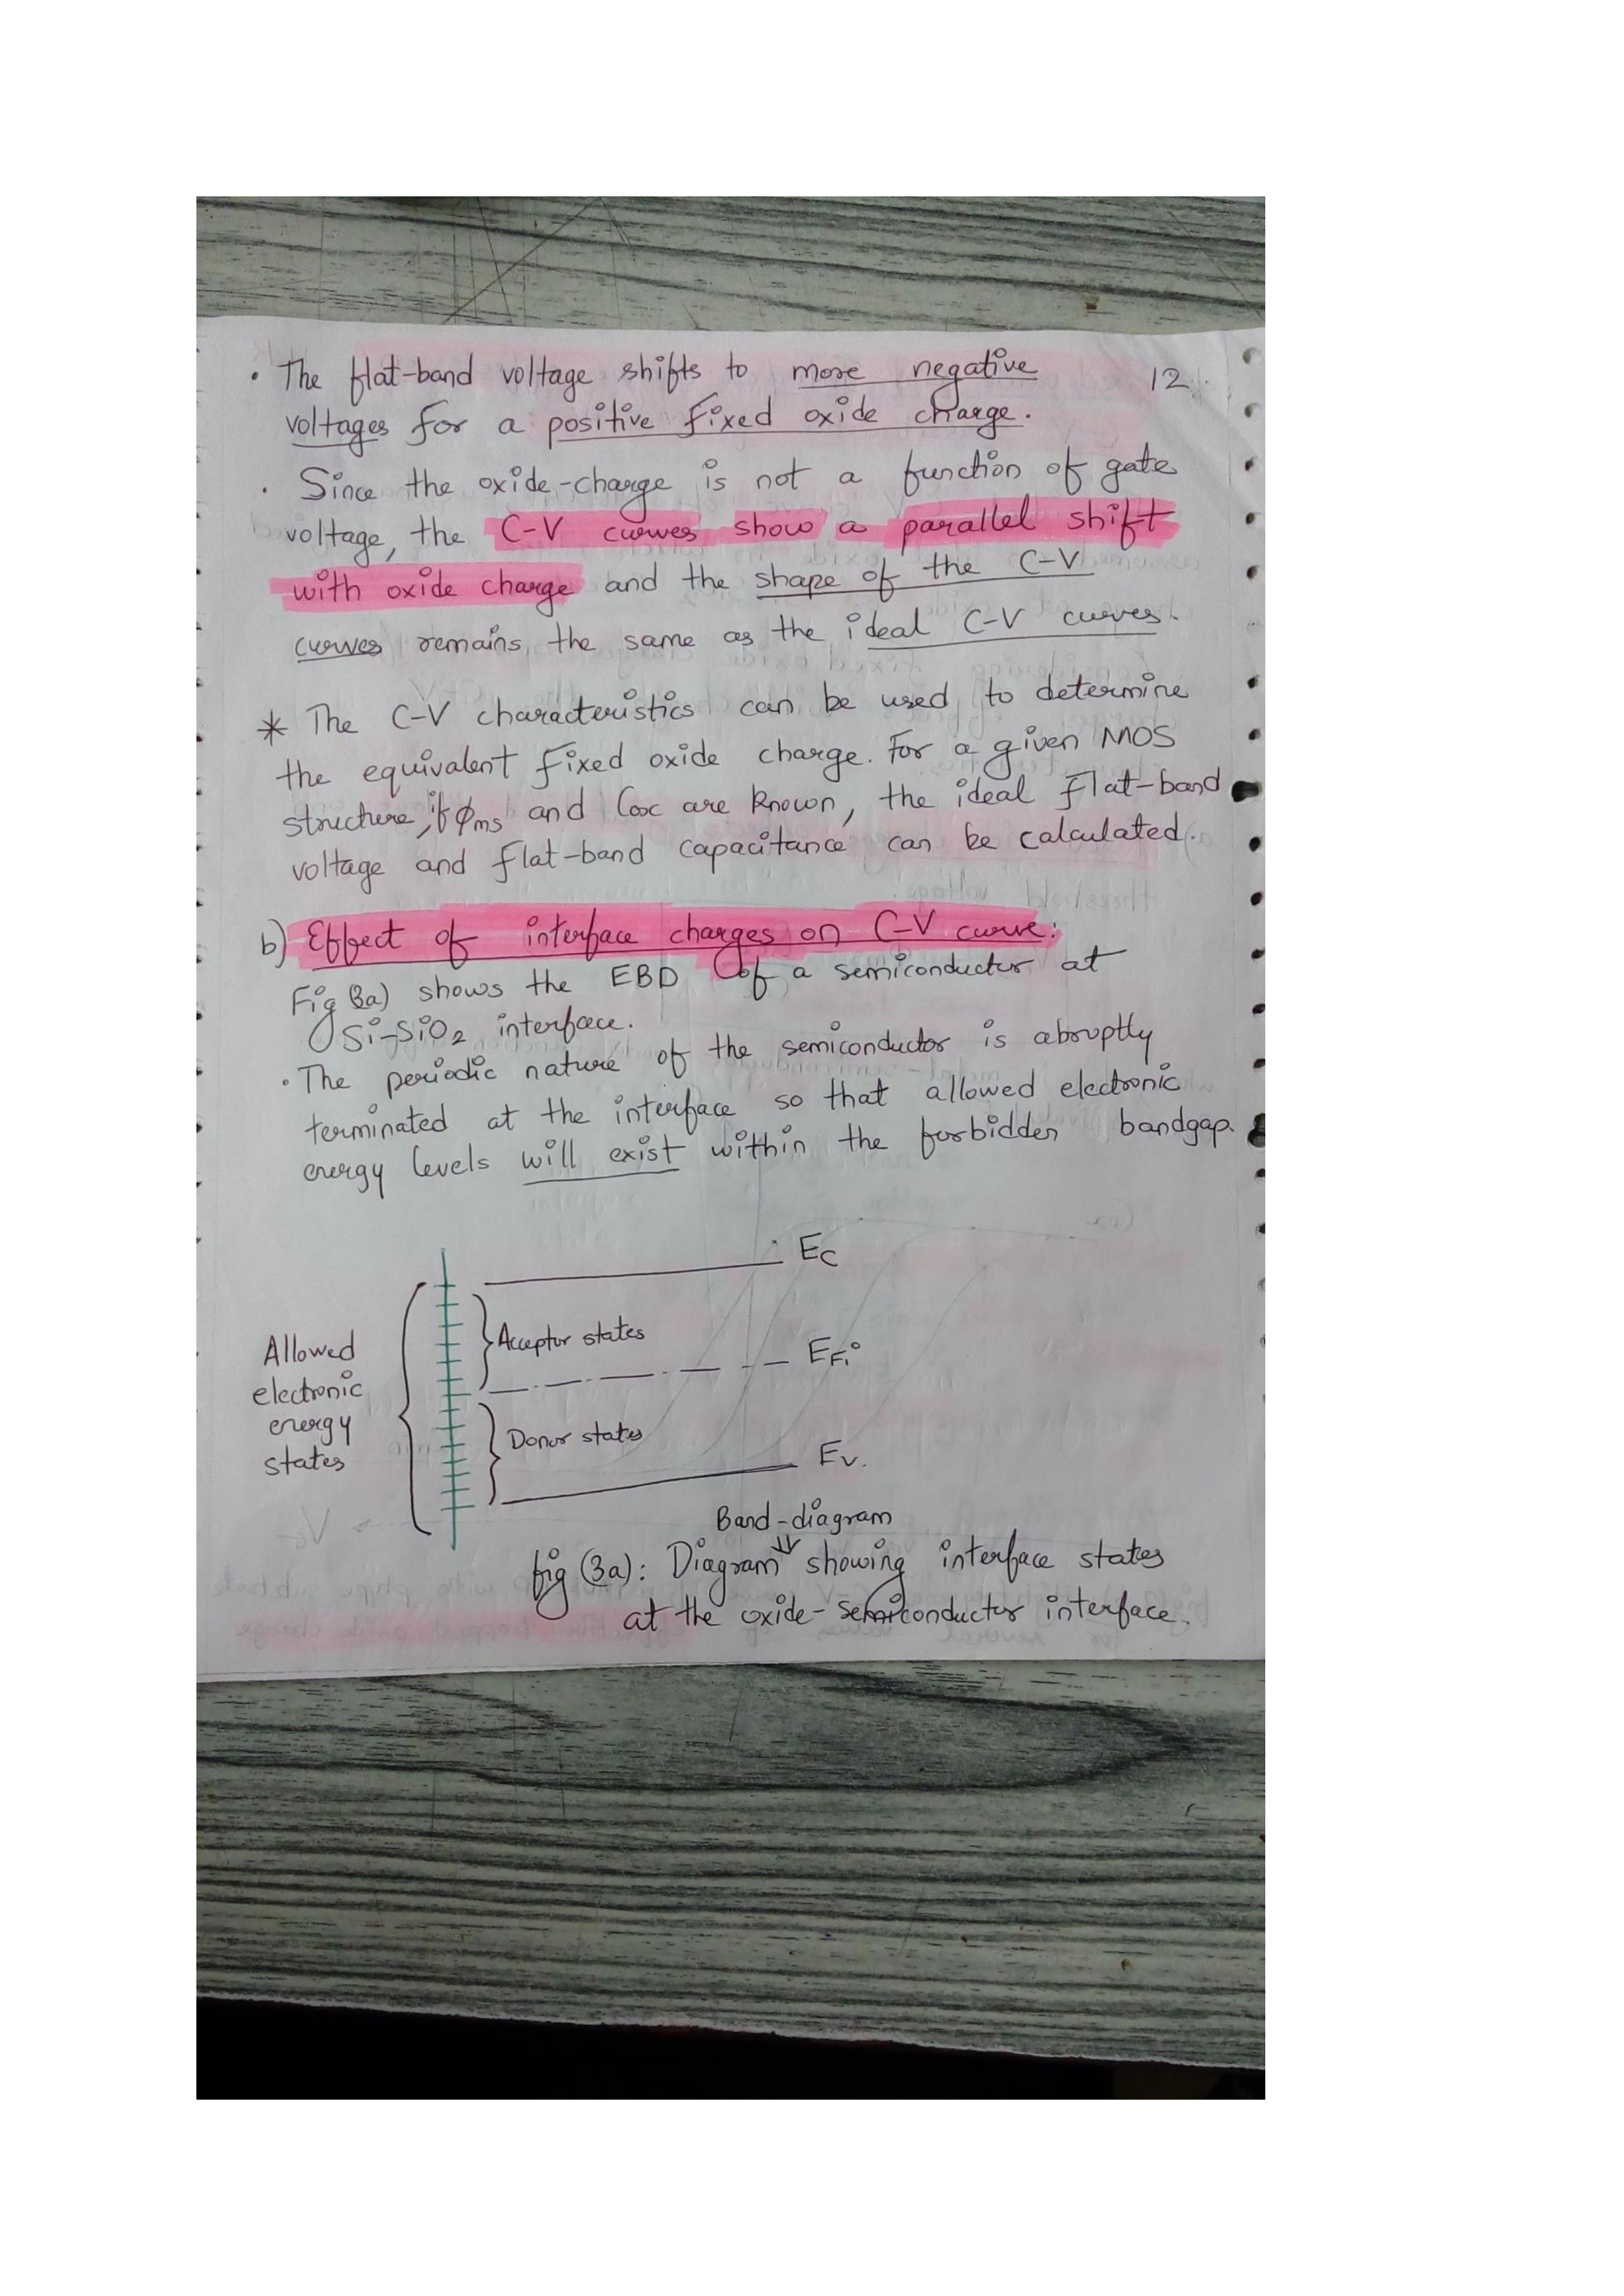 • The flat-band voltage shifts to more negative 12.
voltages for a positive fixed oxide charge.
• Since the oxide-charge is not a function of gate
voltage, the C-V curves show a parallel shift
with oxide charge and the shape of the C-V
curves remains the same as the ideal C-V curves.
* The C-V characteristics can be used to determine
the equivalent fixed oxide charge. For a given MOS
structure, if φms and Cox are known, the ideal flat-band
voltage and flat-band capacitance can be calculated.
b) Effect of interface charges on C-V curve:
Fig (3a) shows the EBD of a semiconductor at
Si-SiO2 interface.
• The periodic nature of the semiconductor is abruptly
terminated at the interface so that allowed electronic
energy levels will exist within the forbidden bandgap.
Ec
Acceptor states
Allowed
electronic
energy
states
EFi
Donor states
Ev.
Band-diagram
fig (3a): Diagram showing interface states
at the oxide-semiconductor interface.